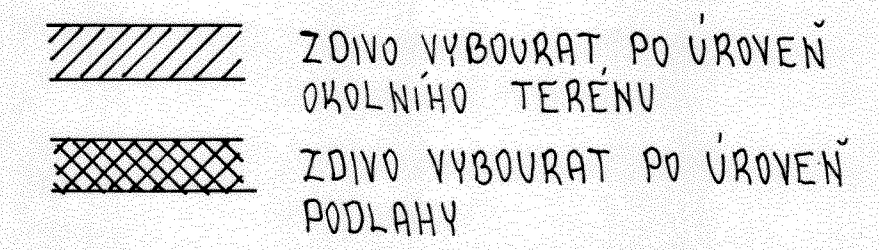 ZDIVO VYBOURAT PO ÚROVEŇ
OKOLNÍHO TERÉNU
ZDIVO VYBOURAT PO ÚROVEŇ
PODLAHY